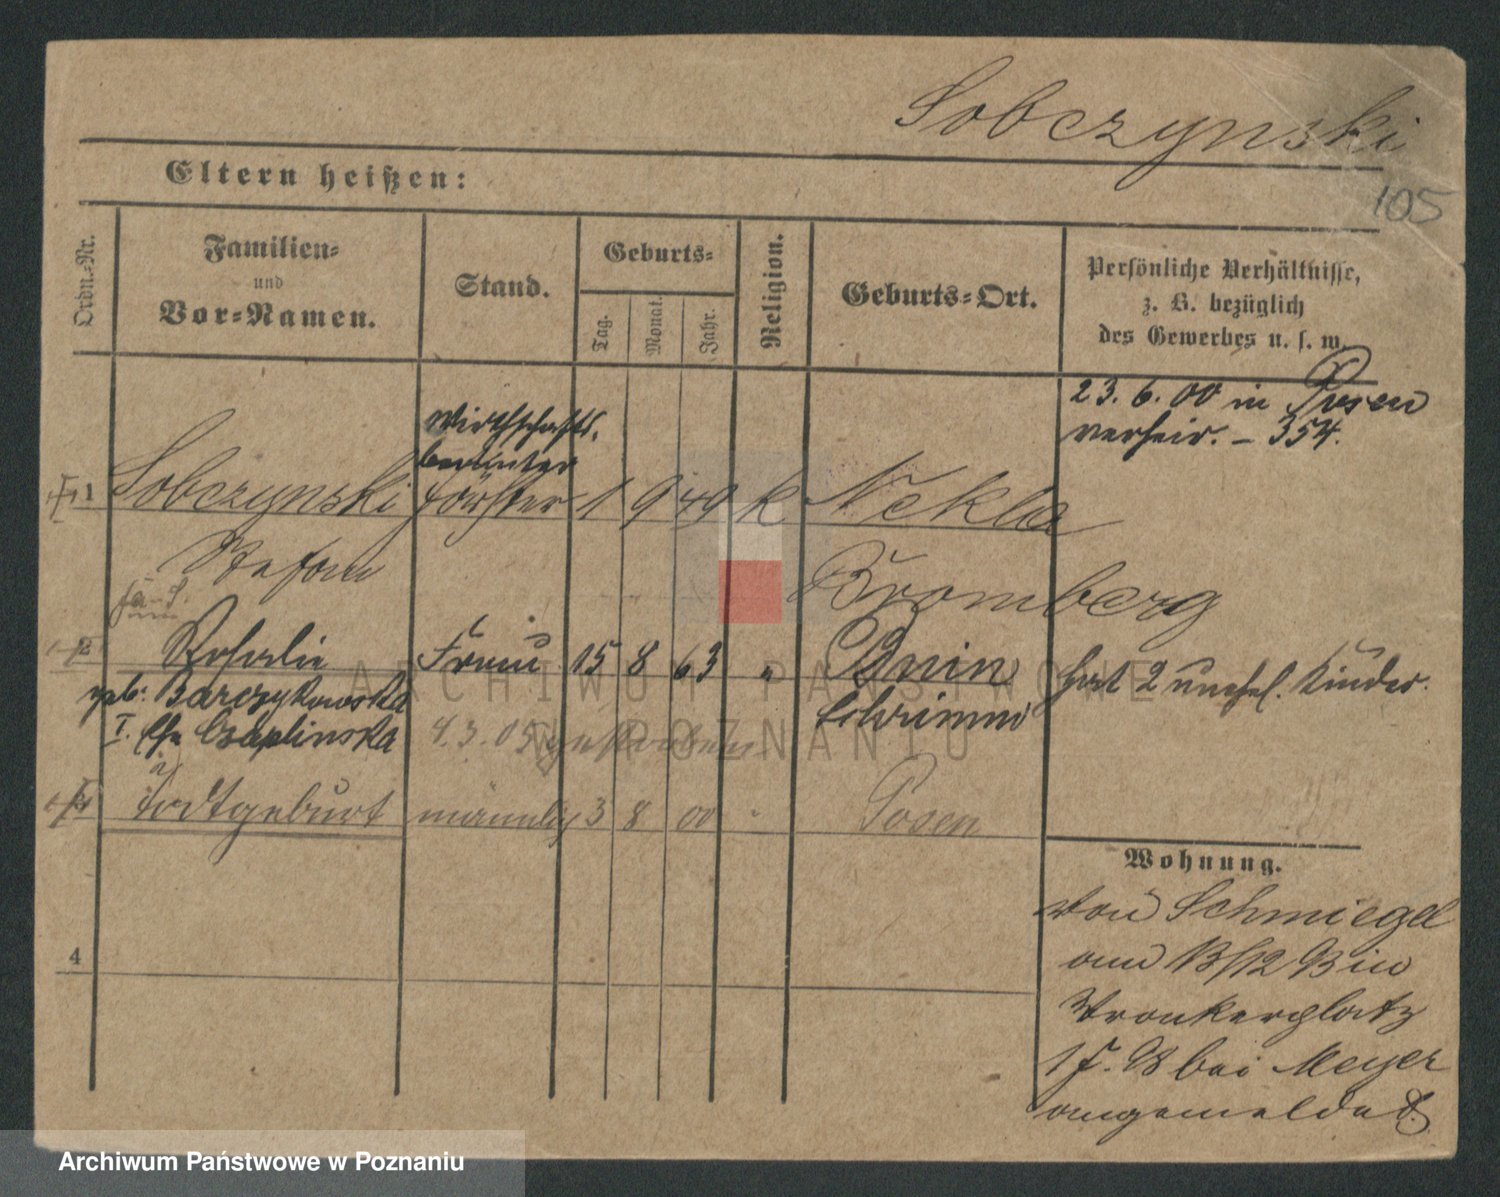 Sobczynski
105
Eltern heißen:
Ordn.-Nr.
Familien-
und
Vor-Namen.
Stand.
Geburts-
Tag.
Monat.
Jahr.
Religion.
Geburts-Ort.
Persönliche Verhältnisse,
z. B. bezüglich
des Gewerbes u. s. w.
23. 6. 00 in Posen
verheir. – 354.
Wirthschafts-
beamter
1 Sobczynski Förster 1 9 49 k Nekla
Stefan
Bromberg
2 Rosalie Frau 15 8 63 " Bnin
geb. Barczykowska Schrimm
hat 2 unehel. Kinder.
I. Czaplinska 4.3.05 gestorben
Todtgeburt männlich 3 8 00 Posen
Wohnung.
von Schmiegel
am 13/12 93 in
Wronkerplatz
1 F. 98 bei Meyer
angemeldet
4
ARCHIWUM PAŃSTWOWE
W POZNANIU
Archiwum Państwowe w Poznaniu